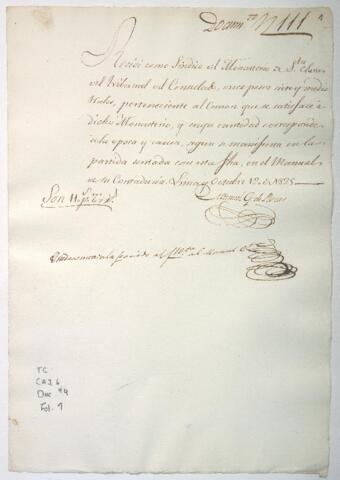 Docum.to N 111
Recibí como Síndico del Monasterio de S.ta Clara
del Tribunal del Consulado, once pesos cinco y medio
reales, perteneciente al Canon que se satisface a
dicho Monasterio, y cuya cantidad corresponde
a la epoca y causa, segun se manifiesta en la
partida sentada con esta fha, en el Manual
de su Contaduría. Lima y Octubre 12 de 1825
Son 11 p.s 5½ r.s
Manuel G. de
del Manual
TC
CAJ 6
Doc 44
Fol. 1